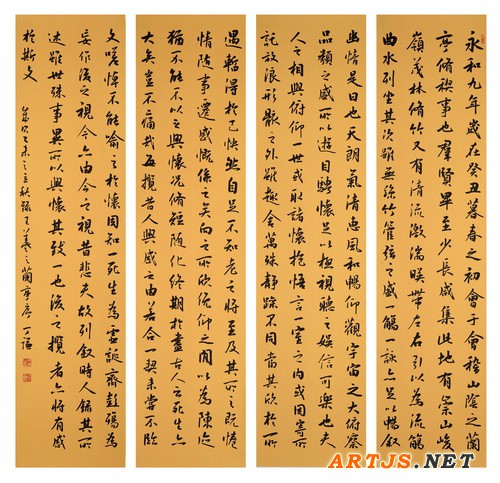 永和九年歲在癸丑暮春之初會于會稽山陰之蘭
亭脩稧事也群賢畢至少長咸集此地有崇山峻
嶺茂林脩竹又有清流激湍暎帶左右引以為流觴
曲水列坐其次雖無絲竹管弦之盛一觴一詠亦足以暢叙
幽情是日也天朗氣清惠風和暢仰觀宇宙之大俯察
品類之盛所以遊目騁懷足以極視聽之娛信可樂也夫
人之相與俯仰一世或取諸懷抱悟言一室之內或因寄所
託放浪形骸之外雖趣舍萬殊靜躁不同當其欣於所
遇暫得於己快然自足不知老之將至及其所之既惓
情隨事遷感慨係之矣向之所欣俛仰之間以為陳迹
猶不能不以之興懷況脩短隨化終期於盡古人云死生亦
大矣豈不痛哉每攬昔人興感之由若合一契未嘗不臨
文嗟悼不能喻之於懷固知一死生為虛誕齊彭殤為
妄作後之視今亦由今之視昔悲夫故列叙時人錄其所
述雖世殊事異所以興懷其致一也後之攬者亦將有感
於斯文
歲次乙未之立秋錄王羲之蘭亭序
ARTJS.NET